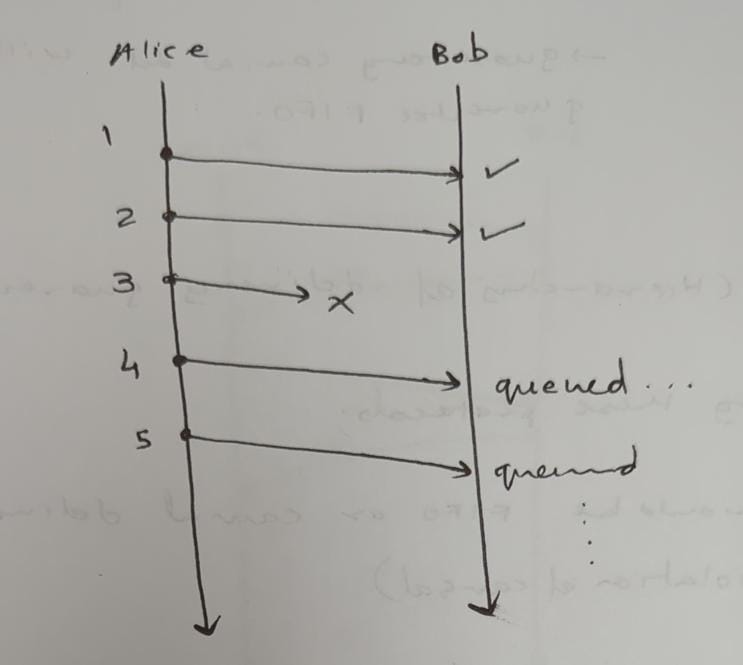 Alice Bob
1 ✓
2 ✓
3 x
4 queued ...
5 queued